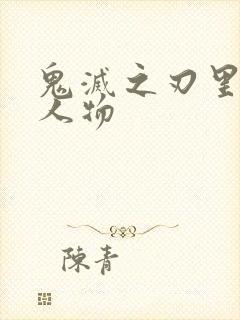 鬼滅之刃里
人物
陳青